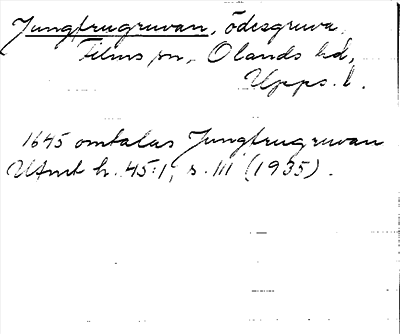 Jungfrugruvan, ödesgruva,
Films sn, Olands hd,
Upps. l.
1645 omtalas Jungfrugruvan
UFmt h. 45:1, s. 111 (1935).